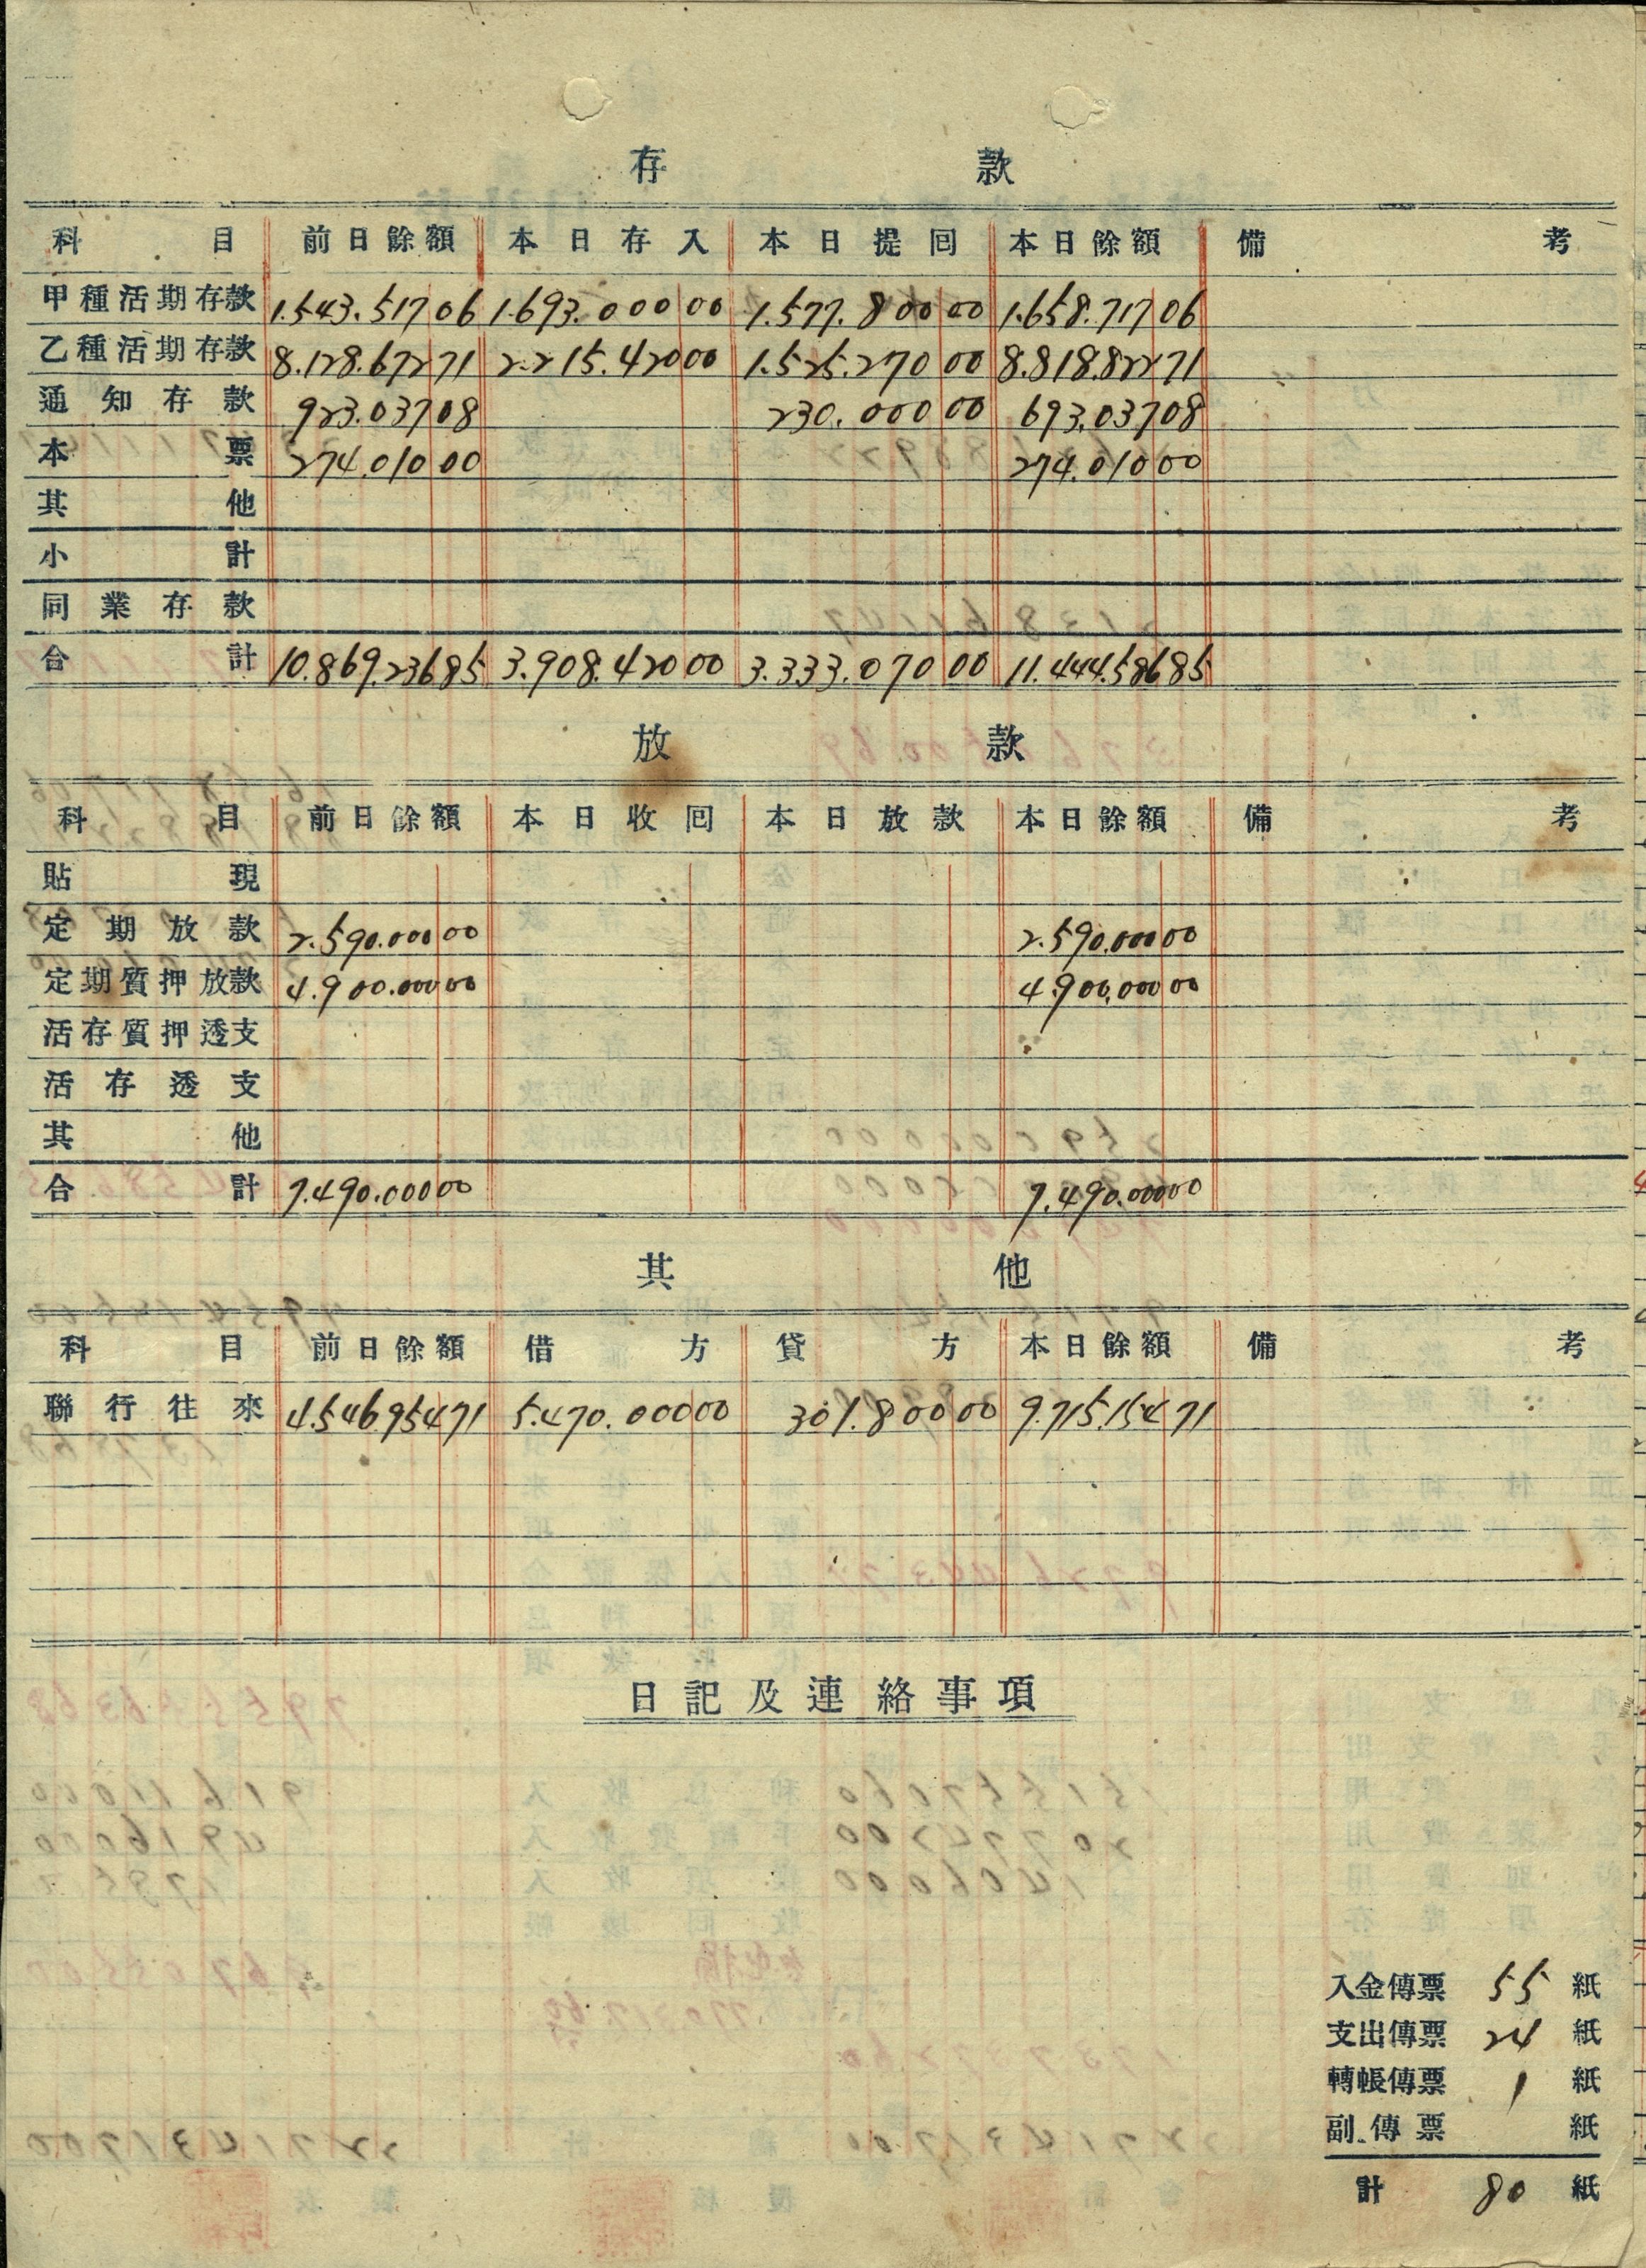 存款
科目 前日餘額 本日存入 本日提回 本日餘額 備考
甲種活期存款 1.543.517 06 1.693.000 00 1.577.800 00 1.658.717 06
乙種活期存款 8.128.672 71 2.215.420 00 1.525.270 00 8.818.822 71
通知存款 923.037 08 230.000 00 693.037 08
本票 274.010 00 274.010 00
其他
小計
同業存款
合計 10.869.236 85 3.908.420 00 3.333.070 00 11.444.586 85
放款
科目 前日餘額 本日收回 本日放款 本日餘額 備考
貼現
定期放款 2.590.000 00 2.590.000 00
定期質押放款 4.900.000 00 4.900.000 00
活存質押透支
活存透支
其他
合計 7.490.000 00 7.490.000 00
其他
科目 前日餘額 借方 貸方 本日餘額 備考
聯行往來 4.546.954 71 5.470.000 00 301.800 00 9.715.154 71
日記及連絡事項
入金傳票 55 紙
支出傳票 24 紙
轉帳傳票 1 紙
副傳票 紙
計 80 紙